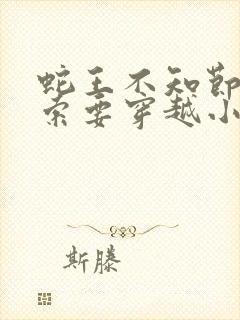 蛇王不知节
索要穿越小
斯滕